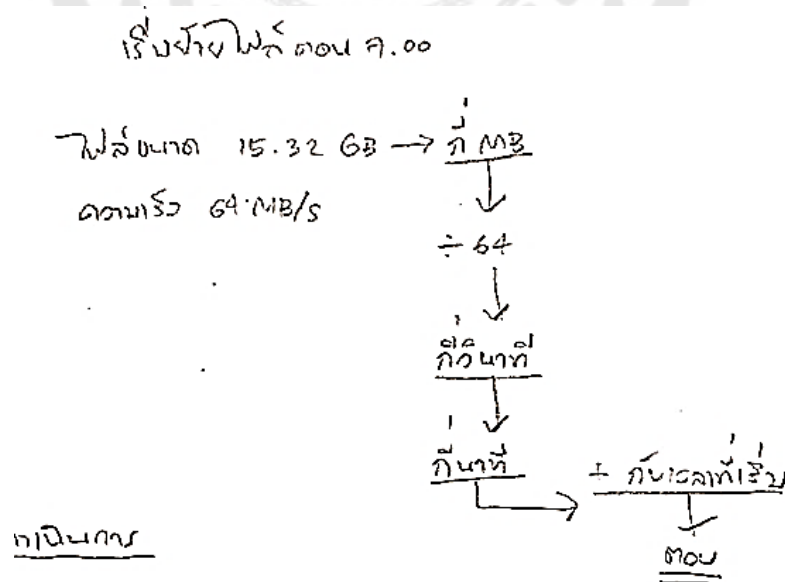 เริ่มย้ายไฟล์ ตอน 9.00
ไฟล์ขนาด 15.32 GB → กี่ MB
ความเร็ว 64 MB/s
÷ 64
กี่วินาที
กี่นาที
+ กับเวลาที่เริ่ม
ตอบ